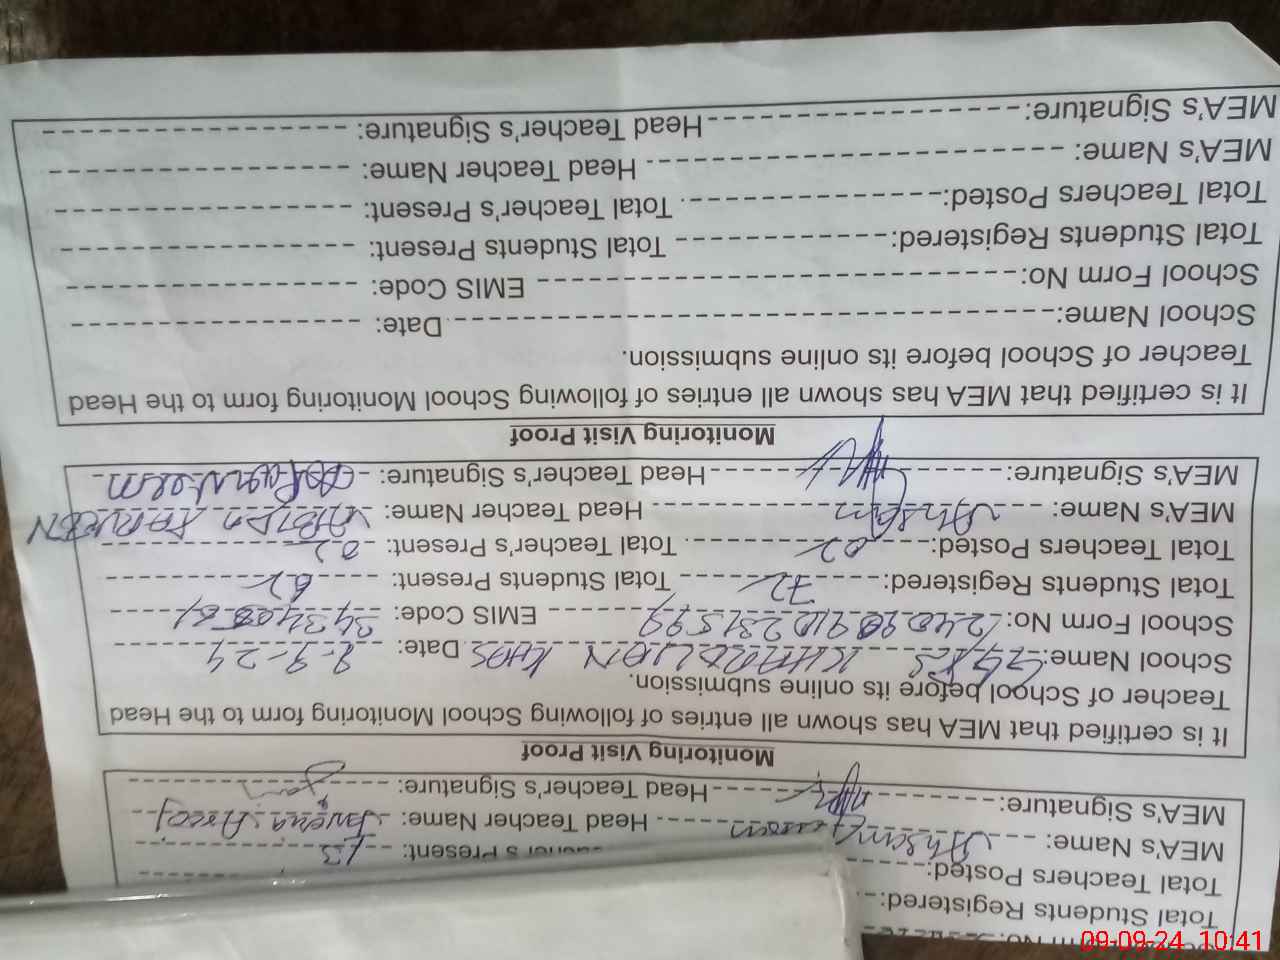 MEA's Name: Head Teacher Name: Javeria
MEA's Signature: Head Teacher's Signature:
Total Students Registered:
Total Teachers Posted: Present: 13
Monitoring Visit Proof
It is certified that MEA has shown all entries of following School Monitoring form to the Head
Teacher of School before its online submission.
School Name: KHAS Date: 9-9-24
School Form No: EMIS Code:
Total Students Registered: 72 Total Students Present: 62
Total Teachers Posted: 02 Total Teacher's Present: 02
MEA's Name: Head Teacher Name:
MEA's Signature: Head Teacher's Signature:
Monitoring Visit Proof
It is certified that MEA has shown all entries of following School Monitoring form to the Head
Teacher of School before its online submission.
School Name: Date:
School Form No: EMIS Code:
Total Students Registered: Total Students Present:
Total Teachers Posted: Total Teacher's Present:
MEA's Name: Head Teacher Name:
MEA's Signature: Head Teacher's Signature:
09-09-24 10:41